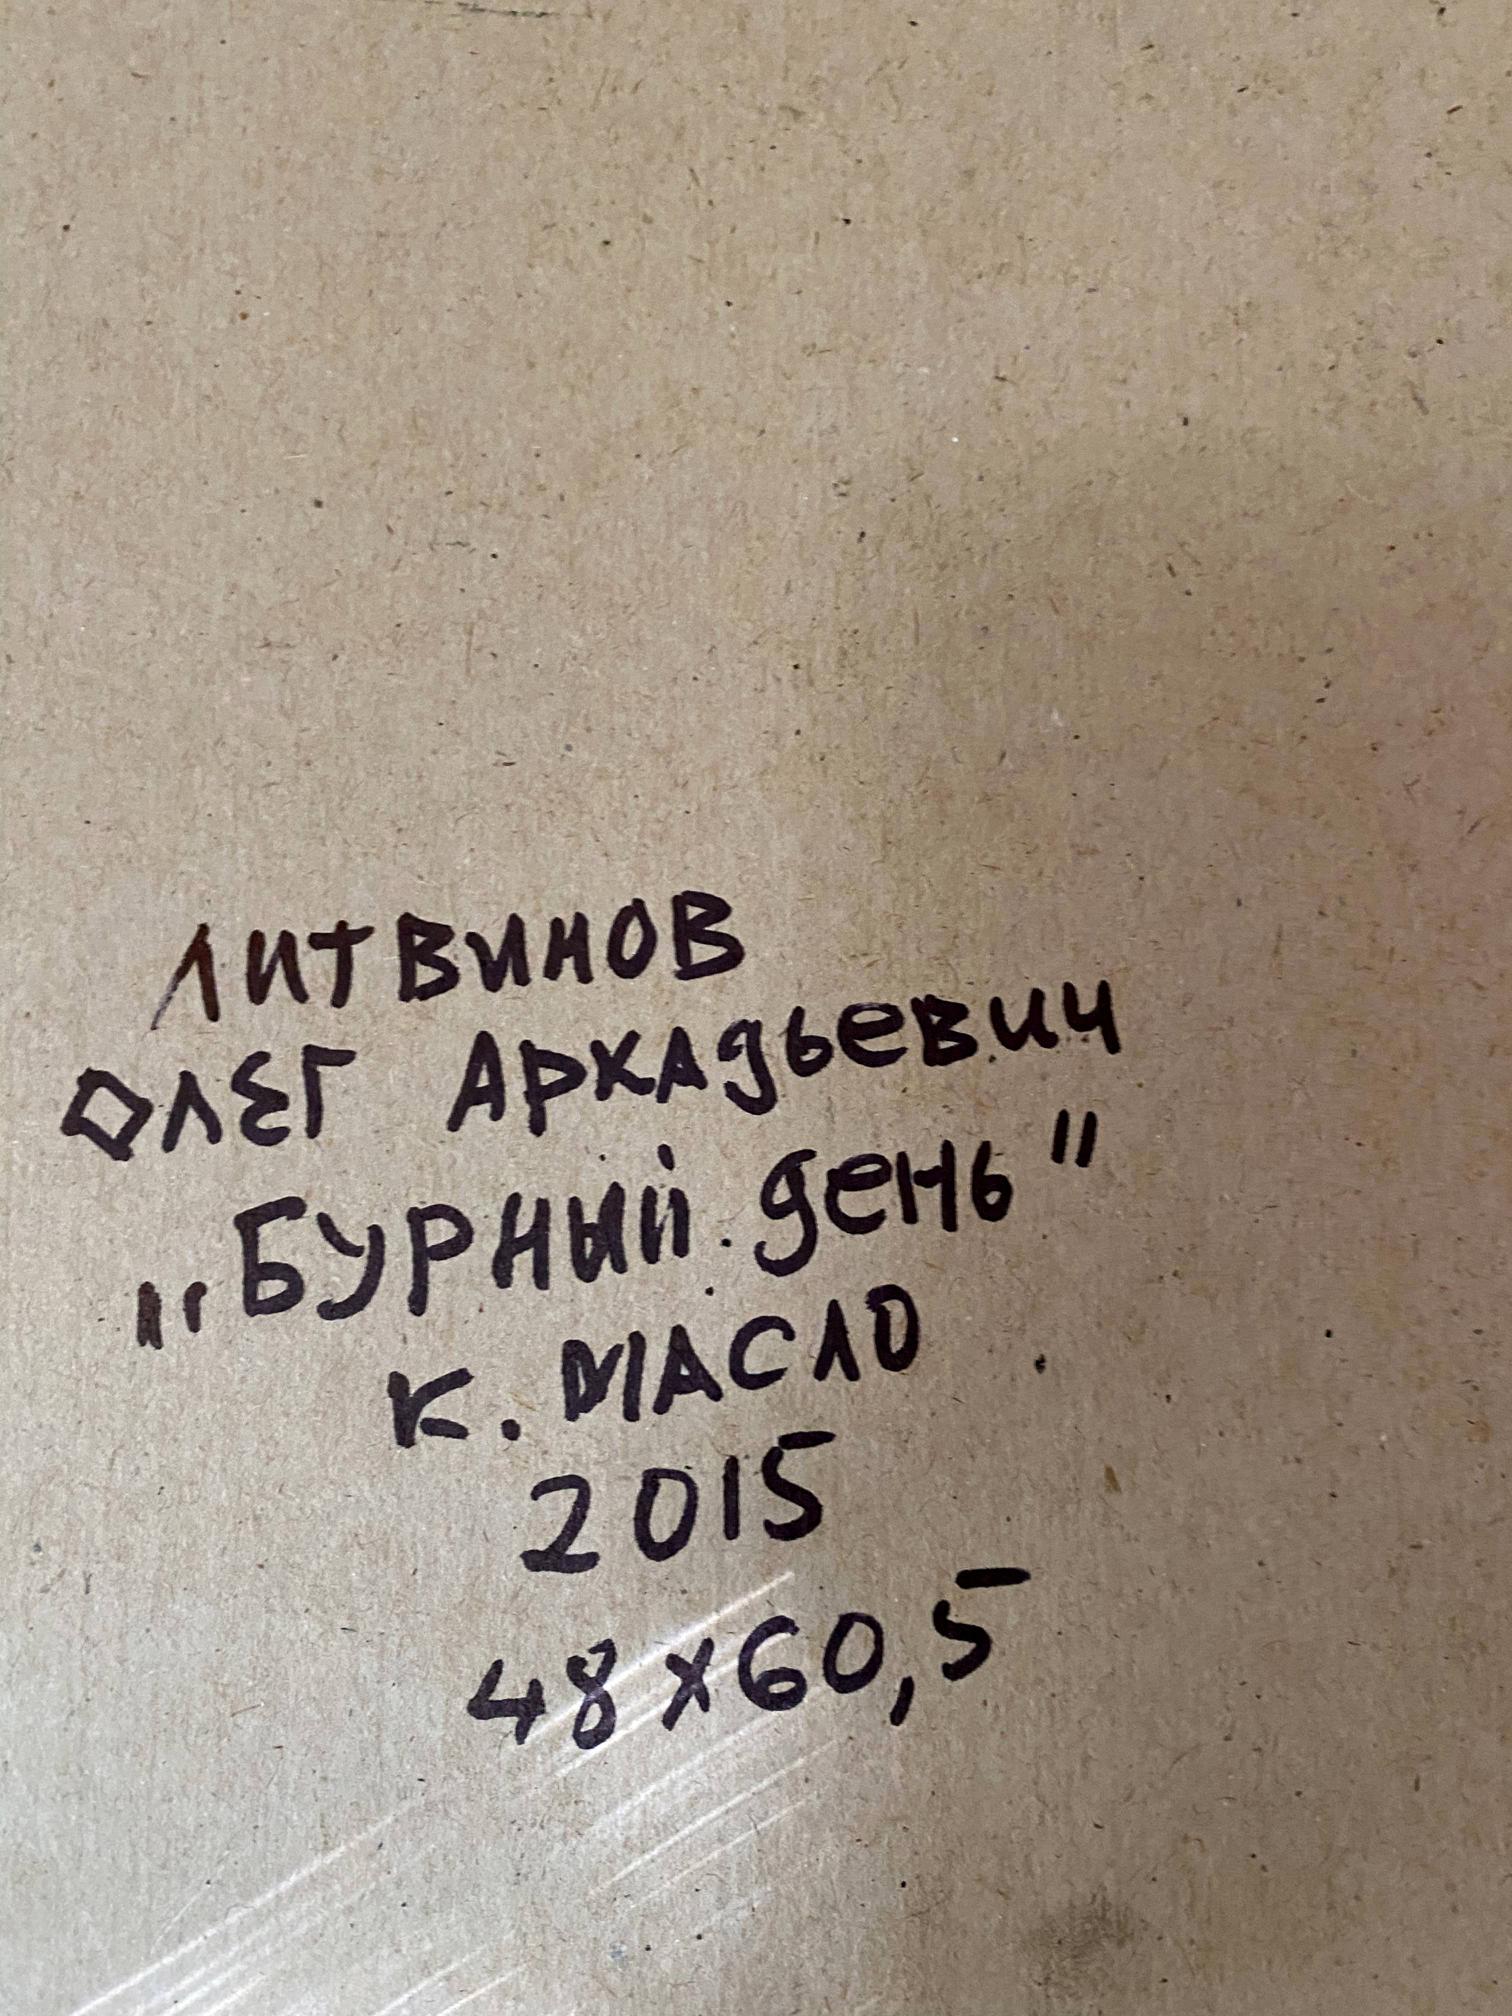 ЛИТВИНОВ
ОЛЕГ АРКАДЬЕВИЧ
„БУРНЫЙ ДЕНЬ"
К. МАСЛО
2015
48x60,5